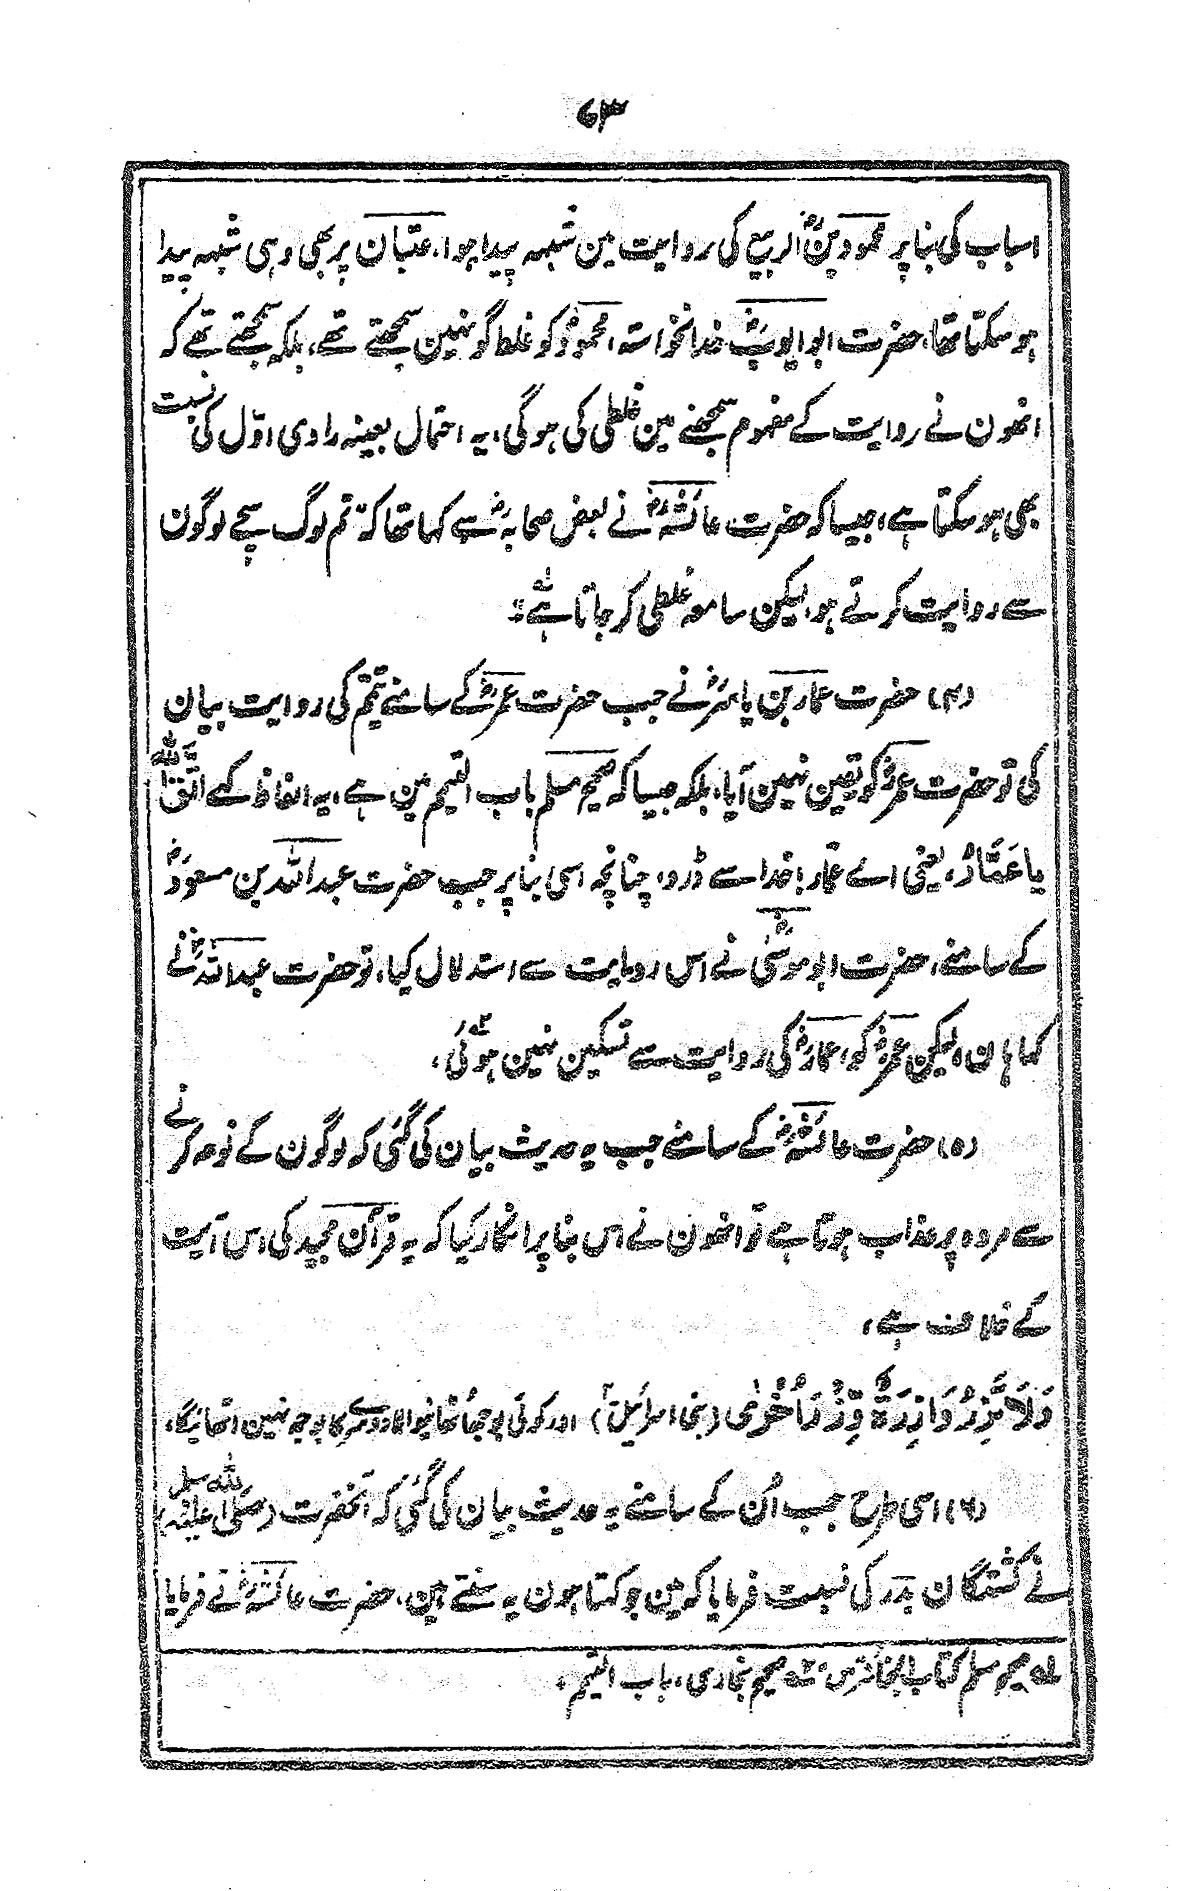 ۶۳
اسباب کی بنا پر محمود بنؓ الربیع کی روایت مین شبہہ پیدا ہوا، عتبان پر بھی وہی شبہہ پیدا
ہو سکتا تھا، حضرت ابو ایوبؓ خدانخواستہ، محمودؓ کو غلط گو نہین سمجھتے تھے، بلکہ سمجھتے تھے کہ
انھون نے روایت کے مفہوم سمجھنے مین غلطی کی ہوگی، یہ احتمال بعینہ راوی اوّل کی نسبت
بھی ہو سکتا ہے، جیسا کہ حضرت عائشہؓ نے بعض صحابہؓ سے کہا تھا کہ تم لوگ سچے لوگون
سے روایت کرتے ہو لیکن سامعہ غلطی کر جاتا ہے"
(۴) حضرت عمار بن یاسرؓ نے جب حضرت عمرؓ کے سامنے تیمّم کی روایت بیان
کی تو حضرت عمرؓ کو یقین نہین آیا، بلکہ جیسا کہ صحیح مسلم باب التیمم مین ہے، یہ الفاظ کہے اتَّقِ اللہَ
یا عَمَّارُ، یعنی اے عمار! خدا سے ڈرو، چنانچہ اسی بنا پر جب حضرت عبد اللہ بن مسعودؓ
کے سامنے، حضرت ابو موسٰیؓ نے اس روایت سے استدلال کیا، تو حضرت عبد اللہؓ نے
کہا ہان، لیکن عمرؓ کو، عمارؓ کی روایت سے تسکین نہین ہوئی،
(۵) حضرت عائشہؓ کے سامنے جب یہ حدیث بیان کی گئی کہ لوگون کے نوحہ کرنے
سے مردہ پر عذاب ہوتا ہے تو انھون نے اس بنا پر انکار کیا کہ یہ قرآن مجید کی اس آیت
کے خلاف ہے،
وَلَا تَزِرُ وَازِرَةٌ وِّزْرَ اُخْرٰى (بنی اسرائیل) اور کوئی بوجھ اُٹھانیوالا دوسرے کا بوجھ نہین اٹھائیگا،
(۶) اسی طرح جب اُن کے سامنے یہ حدیث بیان کی گئی کہ آنحضرت (صلی اللہ علیہ وسلم)
نے کشتگان بدر کی نسبت فرمایا کہ مین جو کہتا ہون یہ سنتے ہین، حضرت عائشہؓ نے فرمایا
لہ صحیح مسلم کتاب الجنائز ۲ صحیح بخاری، باب التیمم،